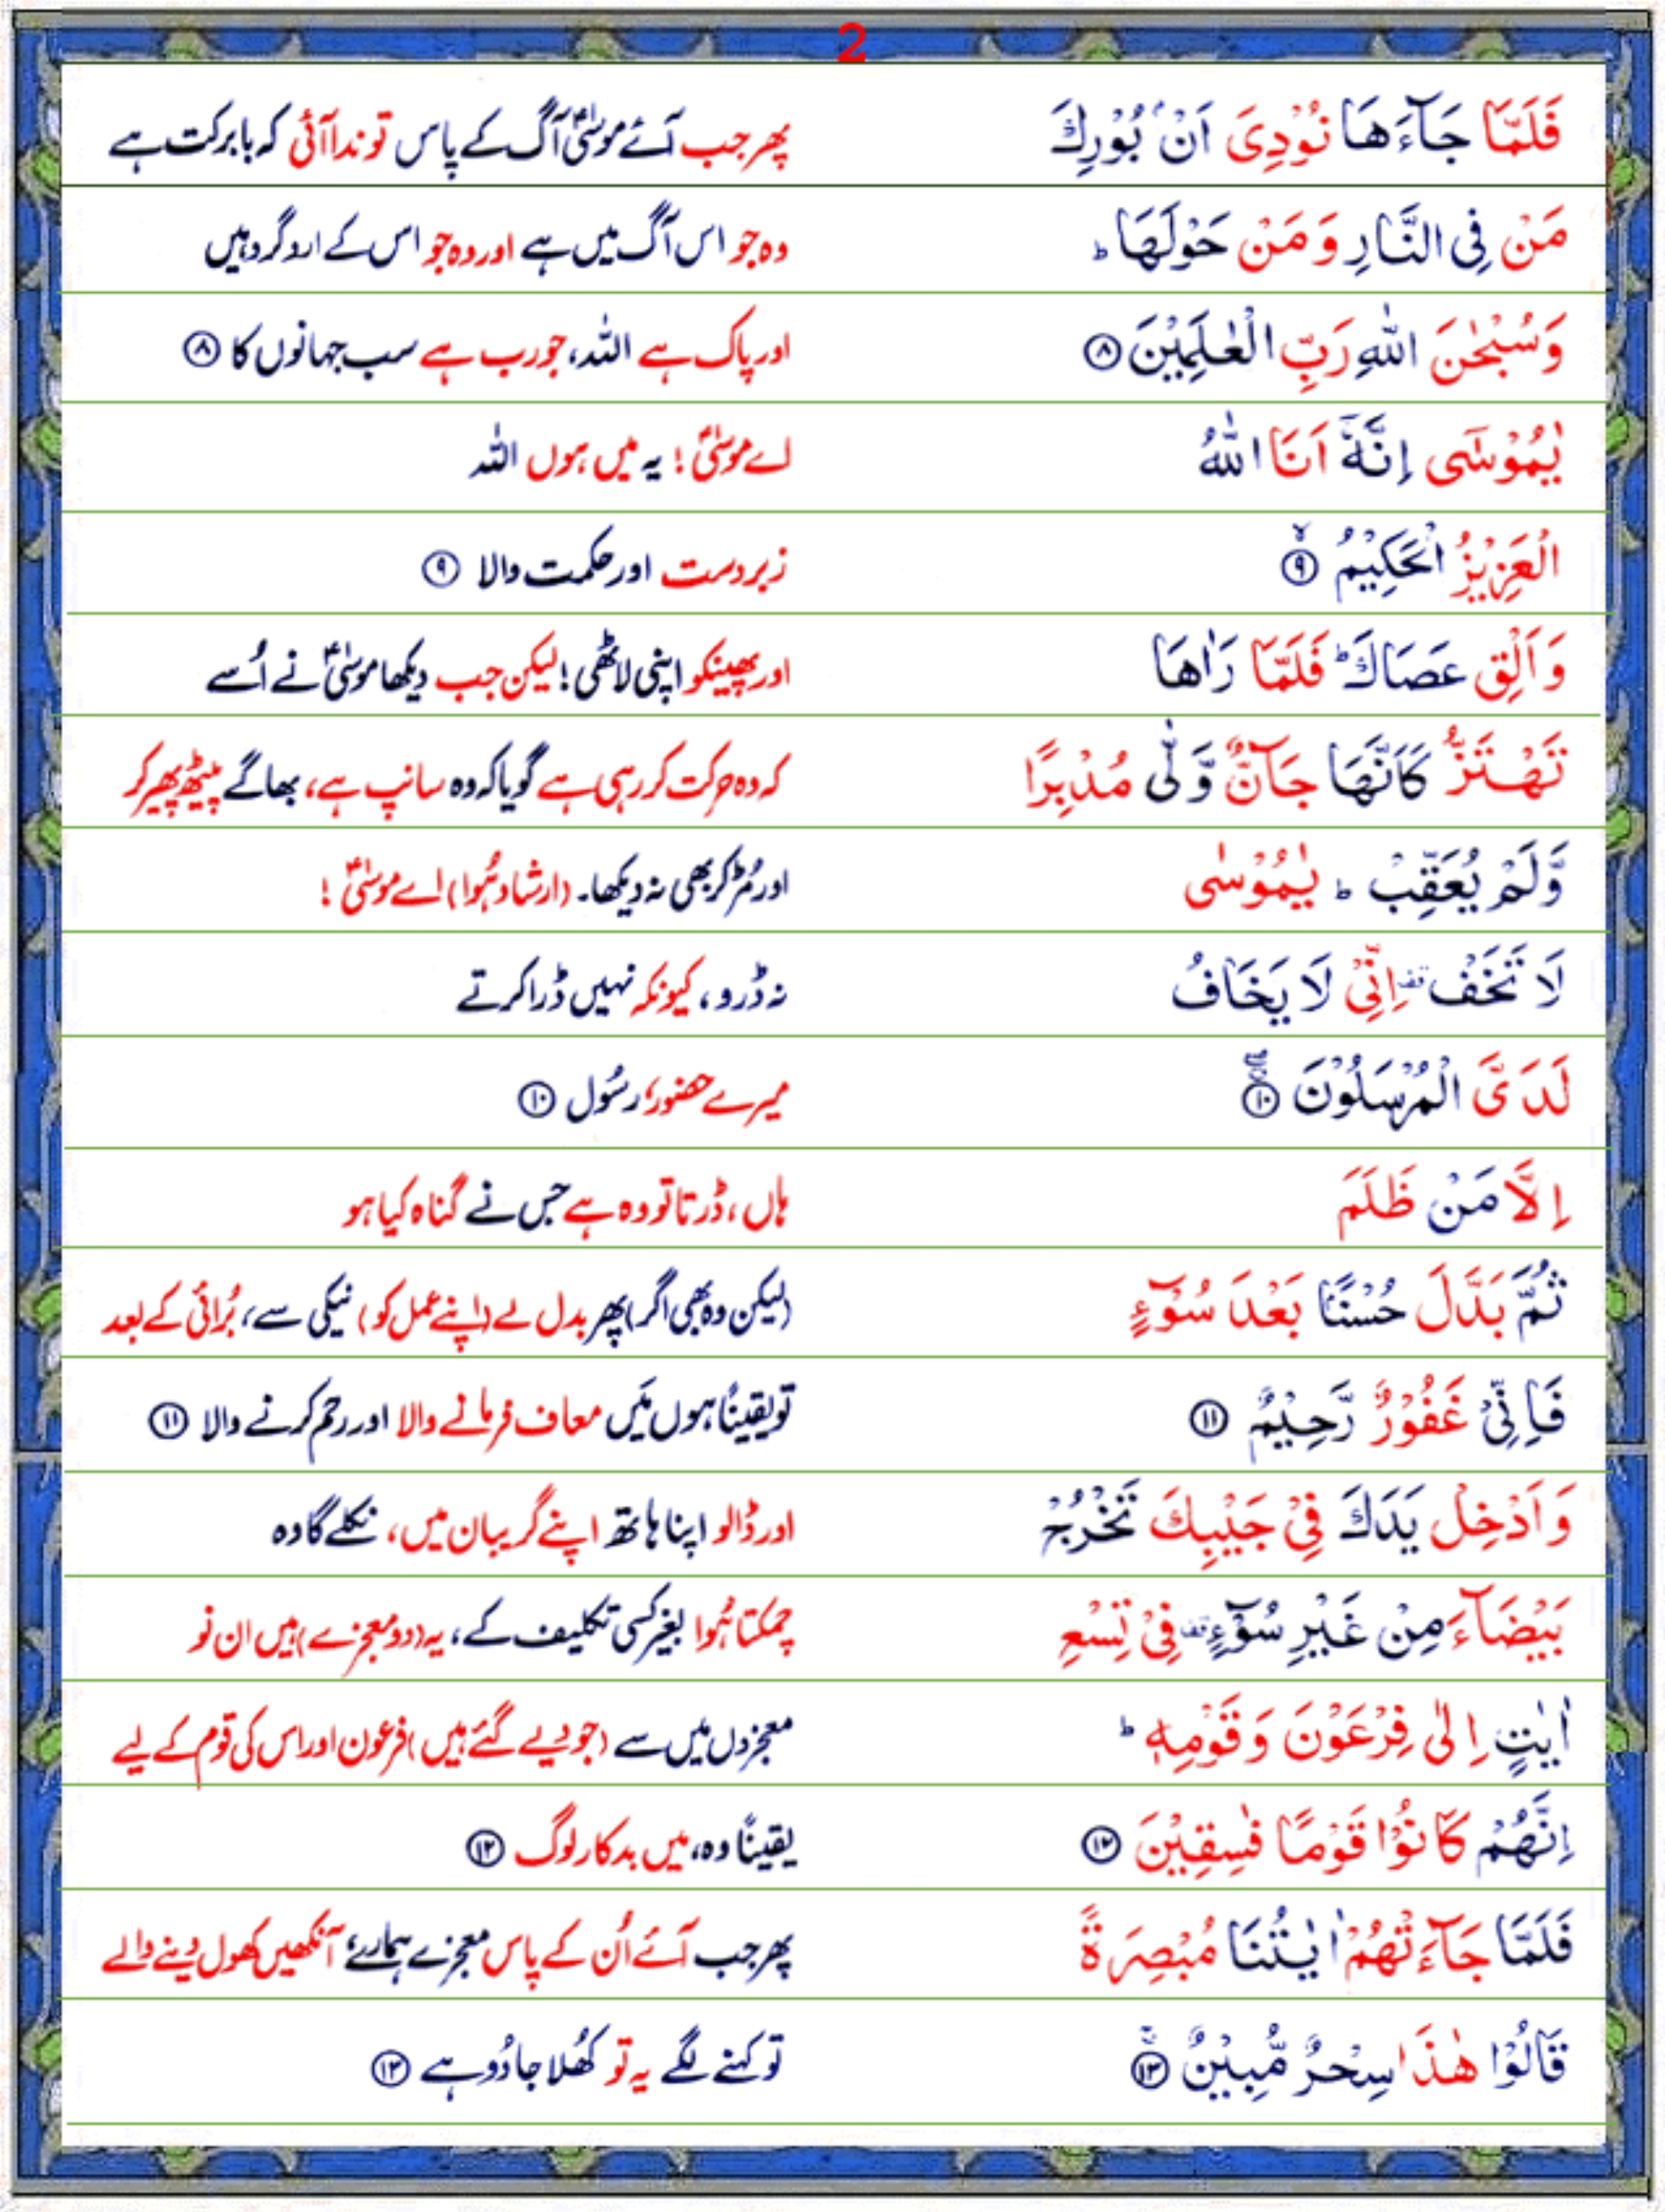 2
فَلَمَّا جَآءَهَا نُوْدِیَ اَنْۢ بُوْرِكَ پھر جب آئے موسیٰؑ آگ کے پاس تو ندا آئی کہ بابرکت ہے
مَنْ فِی النَّارِ وَ مَنْ حَوْلَهَا ؕ وہ جو اس آگ میں ہے اور وہ جو اس کے ارد گرد ہیں
وَسُبْحٰنَ اللّٰهِ رَبِّ الْعٰلَمِیْنَ ۝۸ اور پاک ہے اللہ، جو رب ہے سب جہانوں کا ۝۸
یٰمُوْسٰۤی اِنَّهٗۤ اَنَا اللّٰهُ اے موسیٰؑ ! یہ میں ہوں اللہ
الْعَزِیْزُ الْحَكِیْمُ ۝۹ زبردست اور حکمت والا ۝۹
وَ اَلْقِ عَصَاكَ ؕ فَلَمَّا رَاٰهَا اور پھینکو اپنی لاٹھی! لیکن جب دیکھا موسیٰؑ نے اُسے
تَهْتَزُّ كَاَنَّهَا جَآنٌّ وَّلّٰی مُدْبِرًا کہ وہ حرکت کر رہی ہے گویا کہ وہ سانپ ہے، بھاگے پیٹھ پھیر کر
وَّلَمْ یُعَقِّبْ ؕ یٰمُوْسٰی اور مُڑ کر بھی نہ دیکھا۔ (ارشاد ہُوا) اے موسیٰؑ !
لَا تَخَفْ ۫ اِنِّیْ لَا یَخَافُ نہ ڈرو، کیونکہ نہیں ڈرا کرتے
لَدَیَّ الْمُرْسَلُوْنَ ۝۱۰ میرے حضور، رسُول ۝۱۰
اِلَّا مَنْ ظَلَمَ ہاں، ڈرتا تو وہ ہے جس نے گناہ کیا ہو
ثُمَّ بَدَّلَ حُسْنًۢا بَعْدَ سُوْٓءٍ (لیکن وہ بھی اگر) پھر بدل لے (اپنے عمل کو) نیکی سے، بُرائی کے بعد
فَاِنِّیْ غَفُوْرٌ رَّحِیْمٌ ۝۱۱ تو یقیناً ہوں مَیں معاف فرمانے والا اور رحم کرنے والا ۝۱۱
وَ اَدْخِلْ یَدَكَ فِیْ جَیْبِكَ تَخْرُجْ اور ڈالو اپنا ہاتھ اپنے گریبان میں، نکلے گا وہ
بَیْضَآءَ مِنْ غَیْرِ سُوْٓءٍ ۫ فِیْ تِسْعِ چمکتا ہُوا بغیر کسی تکلیف کے، یہ (دو معجزے) ہیں ان نو
اٰیٰتٍ اِلٰی فِرْعَوْنَ وَ قَوْمِهٖ ؕ معجزوں میں سے (جو دیے گئے ہیں) فرعون اور اس کی قوم کے لیے
اِنَّهُمْ كَانُوْا قَوْمًا فٰسِقِیْنَ ۝۱۲ یقیناً وہ، ہیں بدکار لوگ ۝۱۲
فَلَمَّا جَآءَتْهُمْ اٰیٰتُنَا مُبْصِرَةً پھر جب آئے اُن کے پاس معجزے ہمارے، آنکھیں کھول دینے والے
قَالُوْا هٰذَا سِحْرٌ مُّبِیْنٌ ۝۱۳ تو کہنے لگے یہ تو کھُلا جادُو ہے ۝۱۳